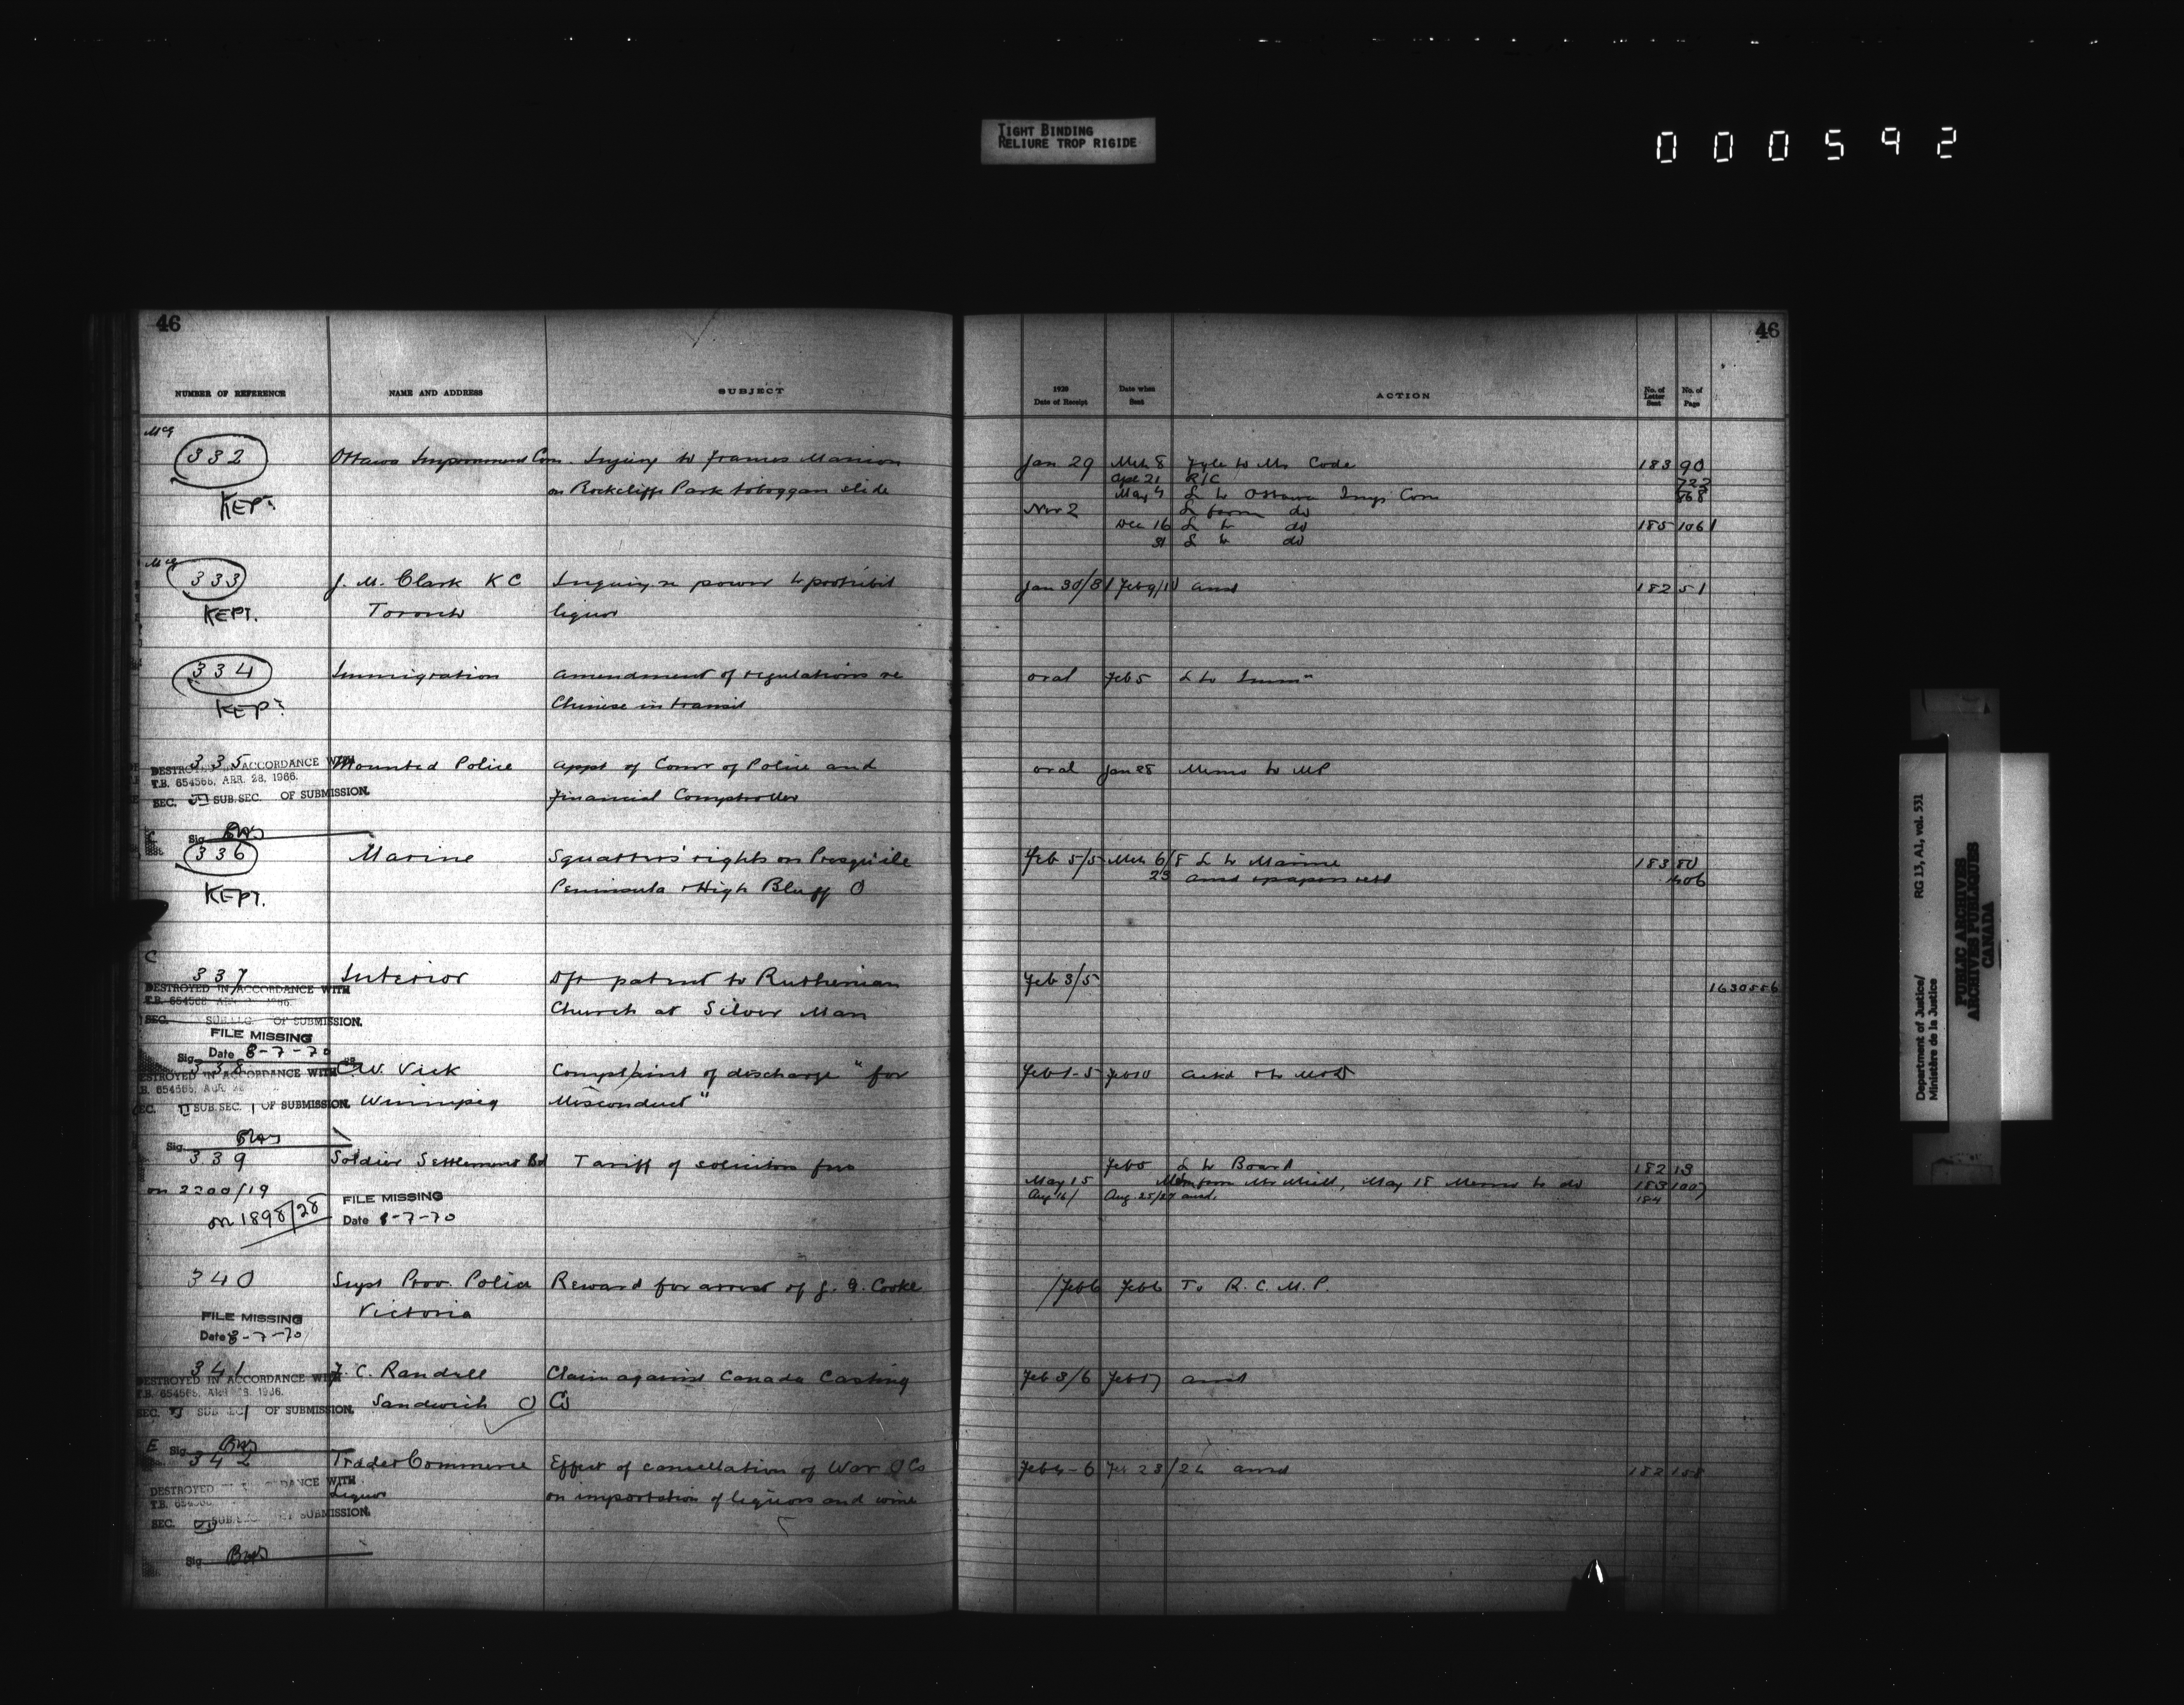 TIGHT BINDING
RELIURE TROP RIGIDE
000592
46
46
NUMBER OF REFERENCE NAME AND ADDRESS SUBJECT
1920 Date of Receipt Date when Sent ACTION No. of Letter Sent No. of Page
332 Ottawa Improvement Com. Injury to Frances Manion
on Rockcliffe Park toboggan slide
KEPT
Jan 29 Mch 8 Fyle to Mr Code 183 90
Apr 21 R/C 722
May 4 L to Ottawa Imp Com 868
Nov 2 L from do
Dec 16 L to do 185 1061
31 L to do
333 J. M. Clark K C Inquiry re power to prohibit
KEPT. Toronto liquor
Jan 30/31 Feb 9/10 ansd 182 51
334 Immigration amendment of regulations re
KEPT Chinese in transit
oral Feb 5 L to Immn
335 Mounted Police appt of Comr of Police and
Financial Comptroller
DESTROYED IN ACCORDANCE WITH
T.B. 654568, APR. 28, 1966.
SEC. SUB.SEC. OF SUBMISSION.
Sig.
oral Jan 28 Memo to MP
336 Marine Squatters' rights on Presqu'ile
KEPT. Peninsula & High Bluff O
Feb 5/5 Mch 6/8 L to Marine 183 80
23 ansd & papers retd 406
C
337 Interior Dft patent to Ruthenian
Church at Silver Man
DESTROYED IN ACCORDANCE WITH
T.B. 654568
SEC. OF SUBMISSION.
FILE MISSING
Sig. Date 8-7-70
Feb 3/5 1630556
338 C.W. Vick Complaint of discharge "for
Winnipeg Misconduct"
DESTROYED IN ACCORDANCE WITH
SEC. SUB SEC. OF SUBMISSION.
Sig.
Feb 1-5 Feb 10 ackd
339 Soldier Settlement Bd Tariff of solicitors fees
on 2200/19
on 1898/28
FILE MISSING
Date 8-7-70
Feb 5 L to Board 182 13
May 15 Mem from Mr May 18 Memo to do 183 1007
Aug 16/ Aug. 25/27 ansd. 184
340 Supt Prov. Police Reward for arrest of J. A. Cooke
Victoria
FILE MISSING
Date 8-7-70
/Feb 6 Feb 6 To R. C. M. P.
341 F. C. Randall Claim against Canada Casting
Sandwich O Co
DESTROYED IN ACCORDANCE WITH
SEC. OF SUBMISSION.
Feb 3/6 Feb 17 ansd
E Sig.
342 Trade & Commerce Effect of cancellation of War O Cs
Liquor on importation of liquors and wine
DESTROYED
SEC. OF SUBMISSION.
Sig.
Feb 4-6 Feb 23/24 ansd 182 158
Department of Justice/
Ministère de la Justice
RG 13, A1, vol. 531
PUBLIC ARCHIVES
ARCHIVES PUBLIQUES
CANADA